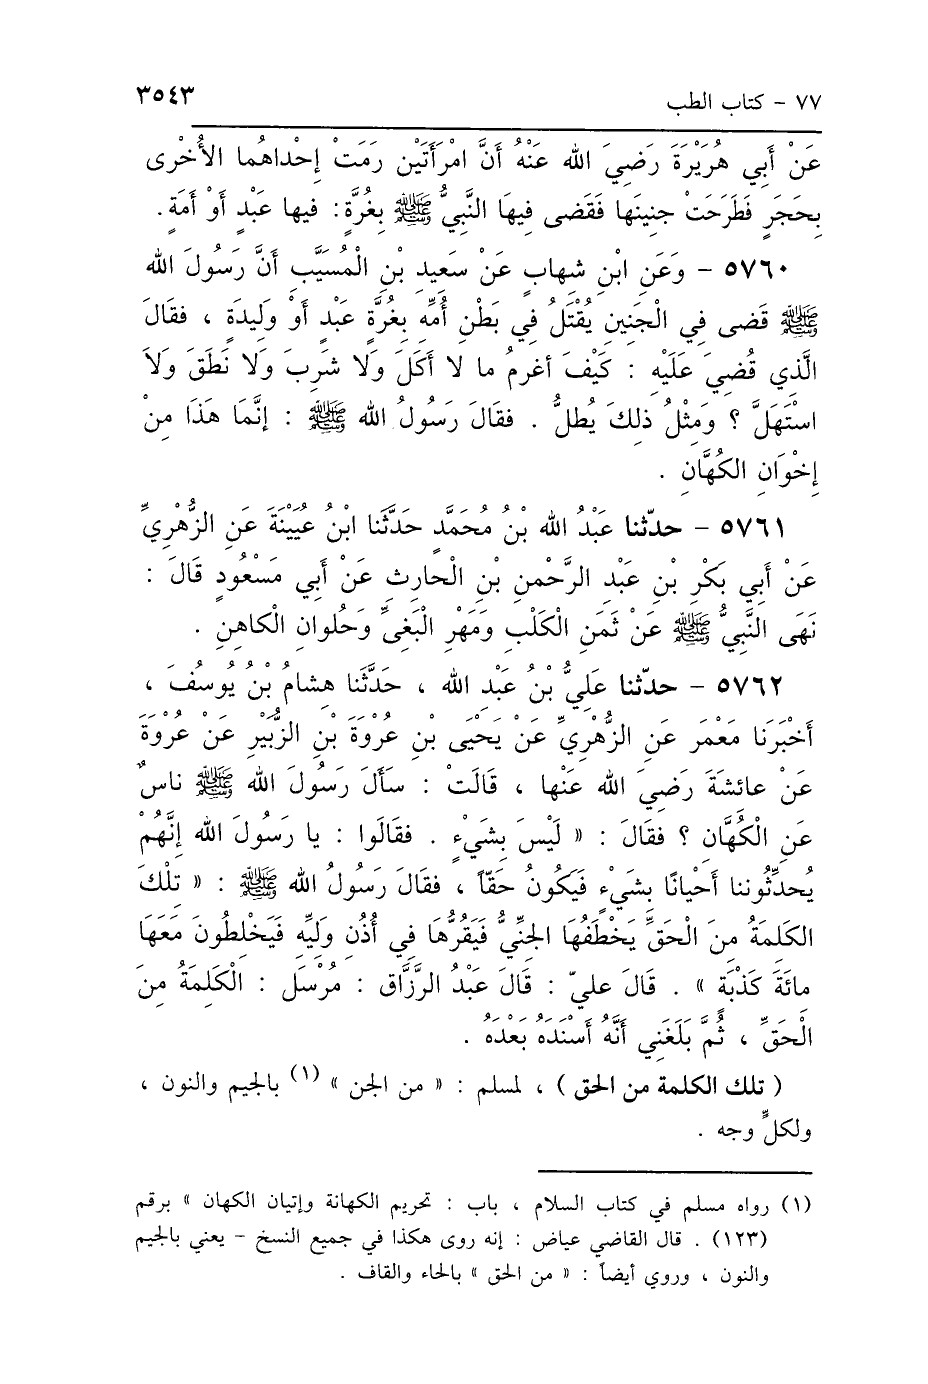 ٧٧ - كتاب الطب ٣٥٤٣
عَنْ أبي هُرَيْرَةَ رَضيَ الله عَنْهُ أنَّ امْرَأتَيْن رَمَتْ إحْداهُما الأُخْرى
بِحَجَرٍ فَطَرَحَتْ جنينَها فَقَضى فِيهَا النَّبيُّ ﷺ بِغُرَّةٍ: فيها عَبْدٍ أوْ أمَةٍ.
٥٧٦٠ - وَعَنِ ابْنِ شهابٍ عَنْ سَعيدِ بْنِ الْمُسَيَّبِ أنَّ رَسُولَ الله
ﷺ قَضى فِي الْجَنينِ يُقْتَلُ فِي بَطْنِ أُمِّهِ بِغُرَّةٍ عَبْدٍ أوْ وَليدَةٍ ، فقَالَ
الَّذِي قُضِيَ عَلَيْهِ : كَيْفَ أغرمُ ما لا أكَلَ وَلا شرِبَ وَلا نَطَقَ وَلاَ
اسْتَهَلَّ ؟ وَمَثْلُ ذلِكَ يُطلُّ . فقَالَ رَسُولُ الله ﷺ : إنَّمَا هَذَا مِنْ
إخْوَانِ الكُهَّانِ .
٥٧٦١ - حدّثنا عَبْدُ الله بْنُ مُحَمَّدٍ حَدَّثَنا ابْنُ عُيَيْنَةَ عَنِ الزُّهْرِيِّ
عَنْ أبي بَكْرِ بْنِ عَبْد الرَّحْمنِ بْنِ الْحارِثِ عَنْ أبي مَسْعُودٍ قَالَ :
نَهَى النَّبيُّ ﷺ عَنْ ثَمَنِ الْكَلْبِ ومَهْرِ الْبَغيِّ وَحُلوانِ الْكاهِنِ .
٥٧٦٢ - حدّثنا عَلِيُّ بْنُ عَبْدِ الله ، حَدَّثَنا هِشامُ بْنُ يُوسُفَ ،
أخْبَرَنا مَعْمَر عَنِ الزُّهْرِيِّ عَنْ يَحْيَى بْنِ عُرْوَةَ بْنِ الزُّبَيْرِ عَنْ عُرْوَةَ
عَنْ عائشَةَ رَضيَ الله عَنْها ، قَالَتْ : سَأَلَ رَسُولَ الله ﷺ ناسٌ
عَنِ الْكُهَّانِ ؟ فقَالَ : « لَيْسَ بشَيْءٍ . فقَالُوا : يا رَسُولَ الله إنَّهُمْ
يُحدِّثُوننا أحْيانًا بشَيْءٍ فَيَكُونُ حَقّاً ، فقَالَ رَسُولُ الله ﷺ : « تلْكَ
الكَلِمَةُ مِنَ الْحَقِّ يَخْطَفُهَا الجنِّيُّ فَيَقُرُّها فِي أُذُنِ وَلِيِّهِ فَيَخْلطُونَ مَعَهَا
مائَةَ كَذْبَةٍ » . قَالَ عليّ : قَالَ عَبْدُ الرَّزَّاق : مُرْسَل : الْكَلِمَةُ مِنَ
الْحَقِّ ، ثُمَّ بَلَغَنِي أنَّهُ أسْنَدَهُ بَعْدَهُ .
( تلك الكلمة من الحق ) ، لمسلم : « من الجن » (١) بالجيم والنون ،
ولكلٍّ وجه .
(١) رواه مسلم في كتاب السلام ، باب : تحريم الكهانة وإتيان الكهان » برقم
(١٢٣) . قال القاضي عياض : إنه روى هكذا في جميع النسخ - يعني بالجيم
والنون ، وروي أيضاً : « من الحق » بالحاء والقاف .